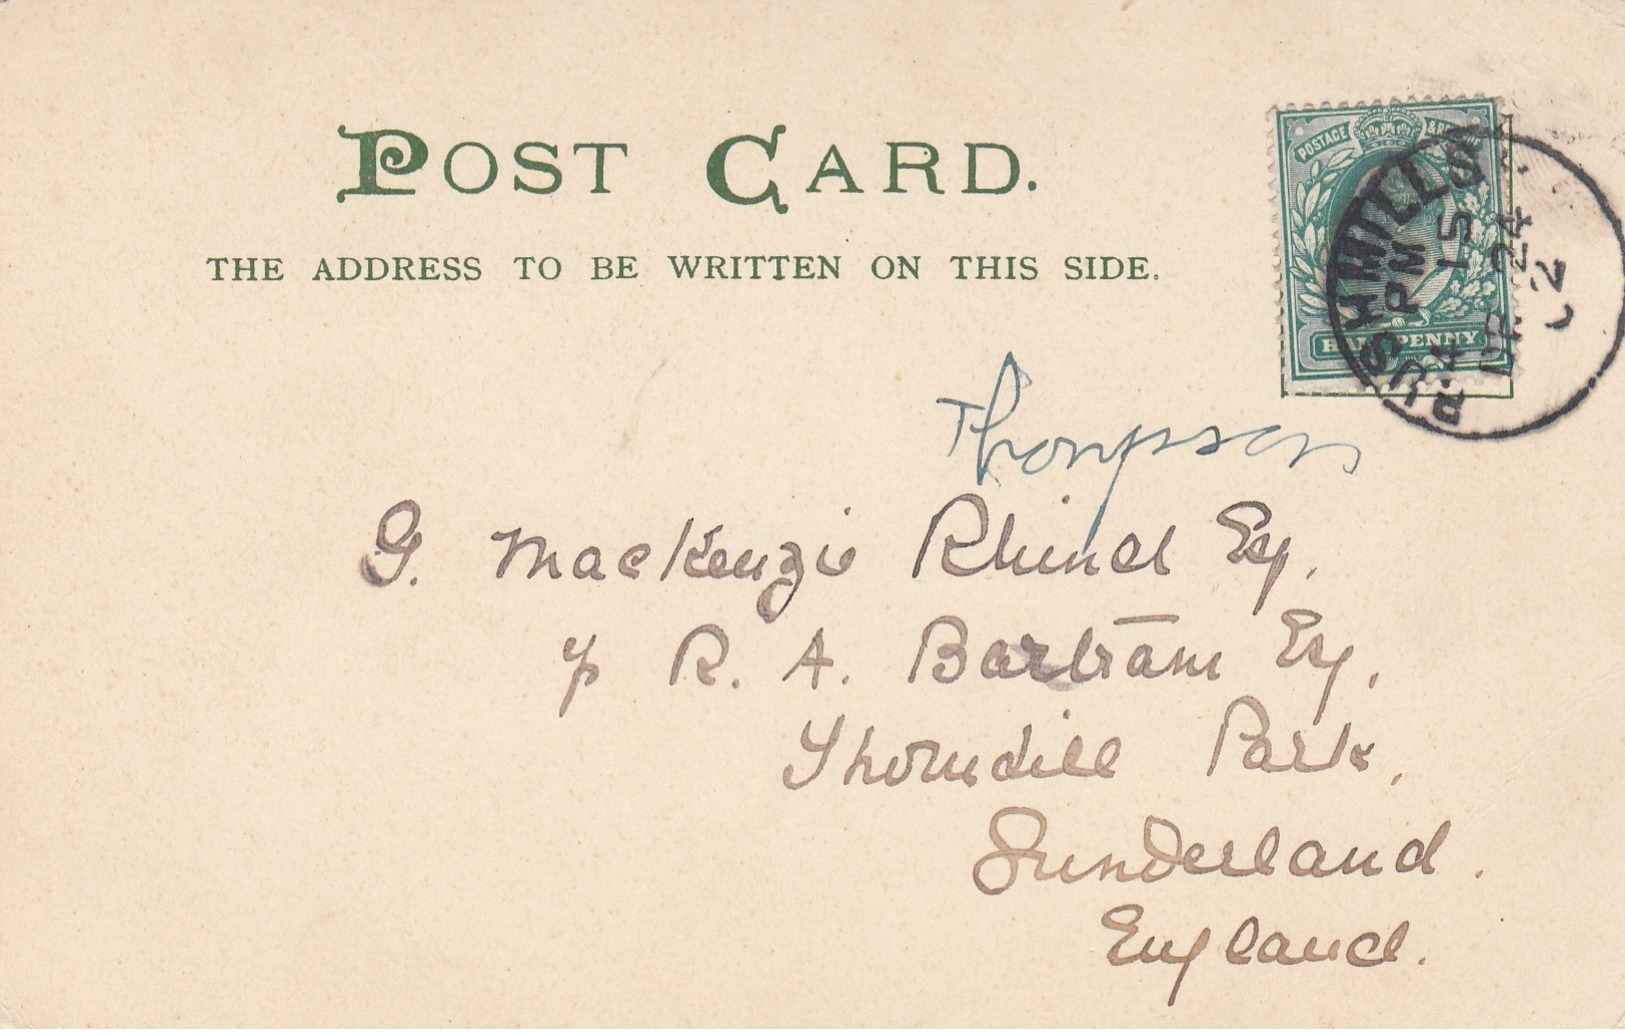 POST CARD.
THE ADDRESS TO BE WRITTEN ON THIS SIDE.
POSTAGE &
HALFPENNY
BUSHMILLS
4 15 PM
24
02
Thompson
G. MacKenzie Rhind Esq.
R. A. Bartram Esq,
Park,
Sunderland.
England.